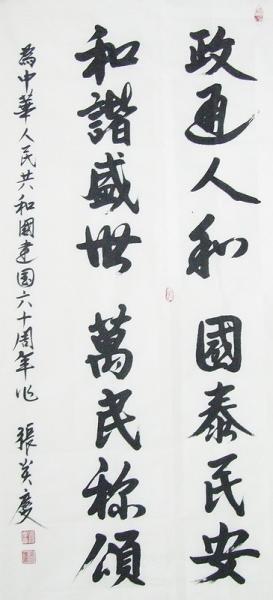 政通人和 國泰民安
和諧盛世 萬民称頌
為中華人民共和國建国六十周年作 張美慶